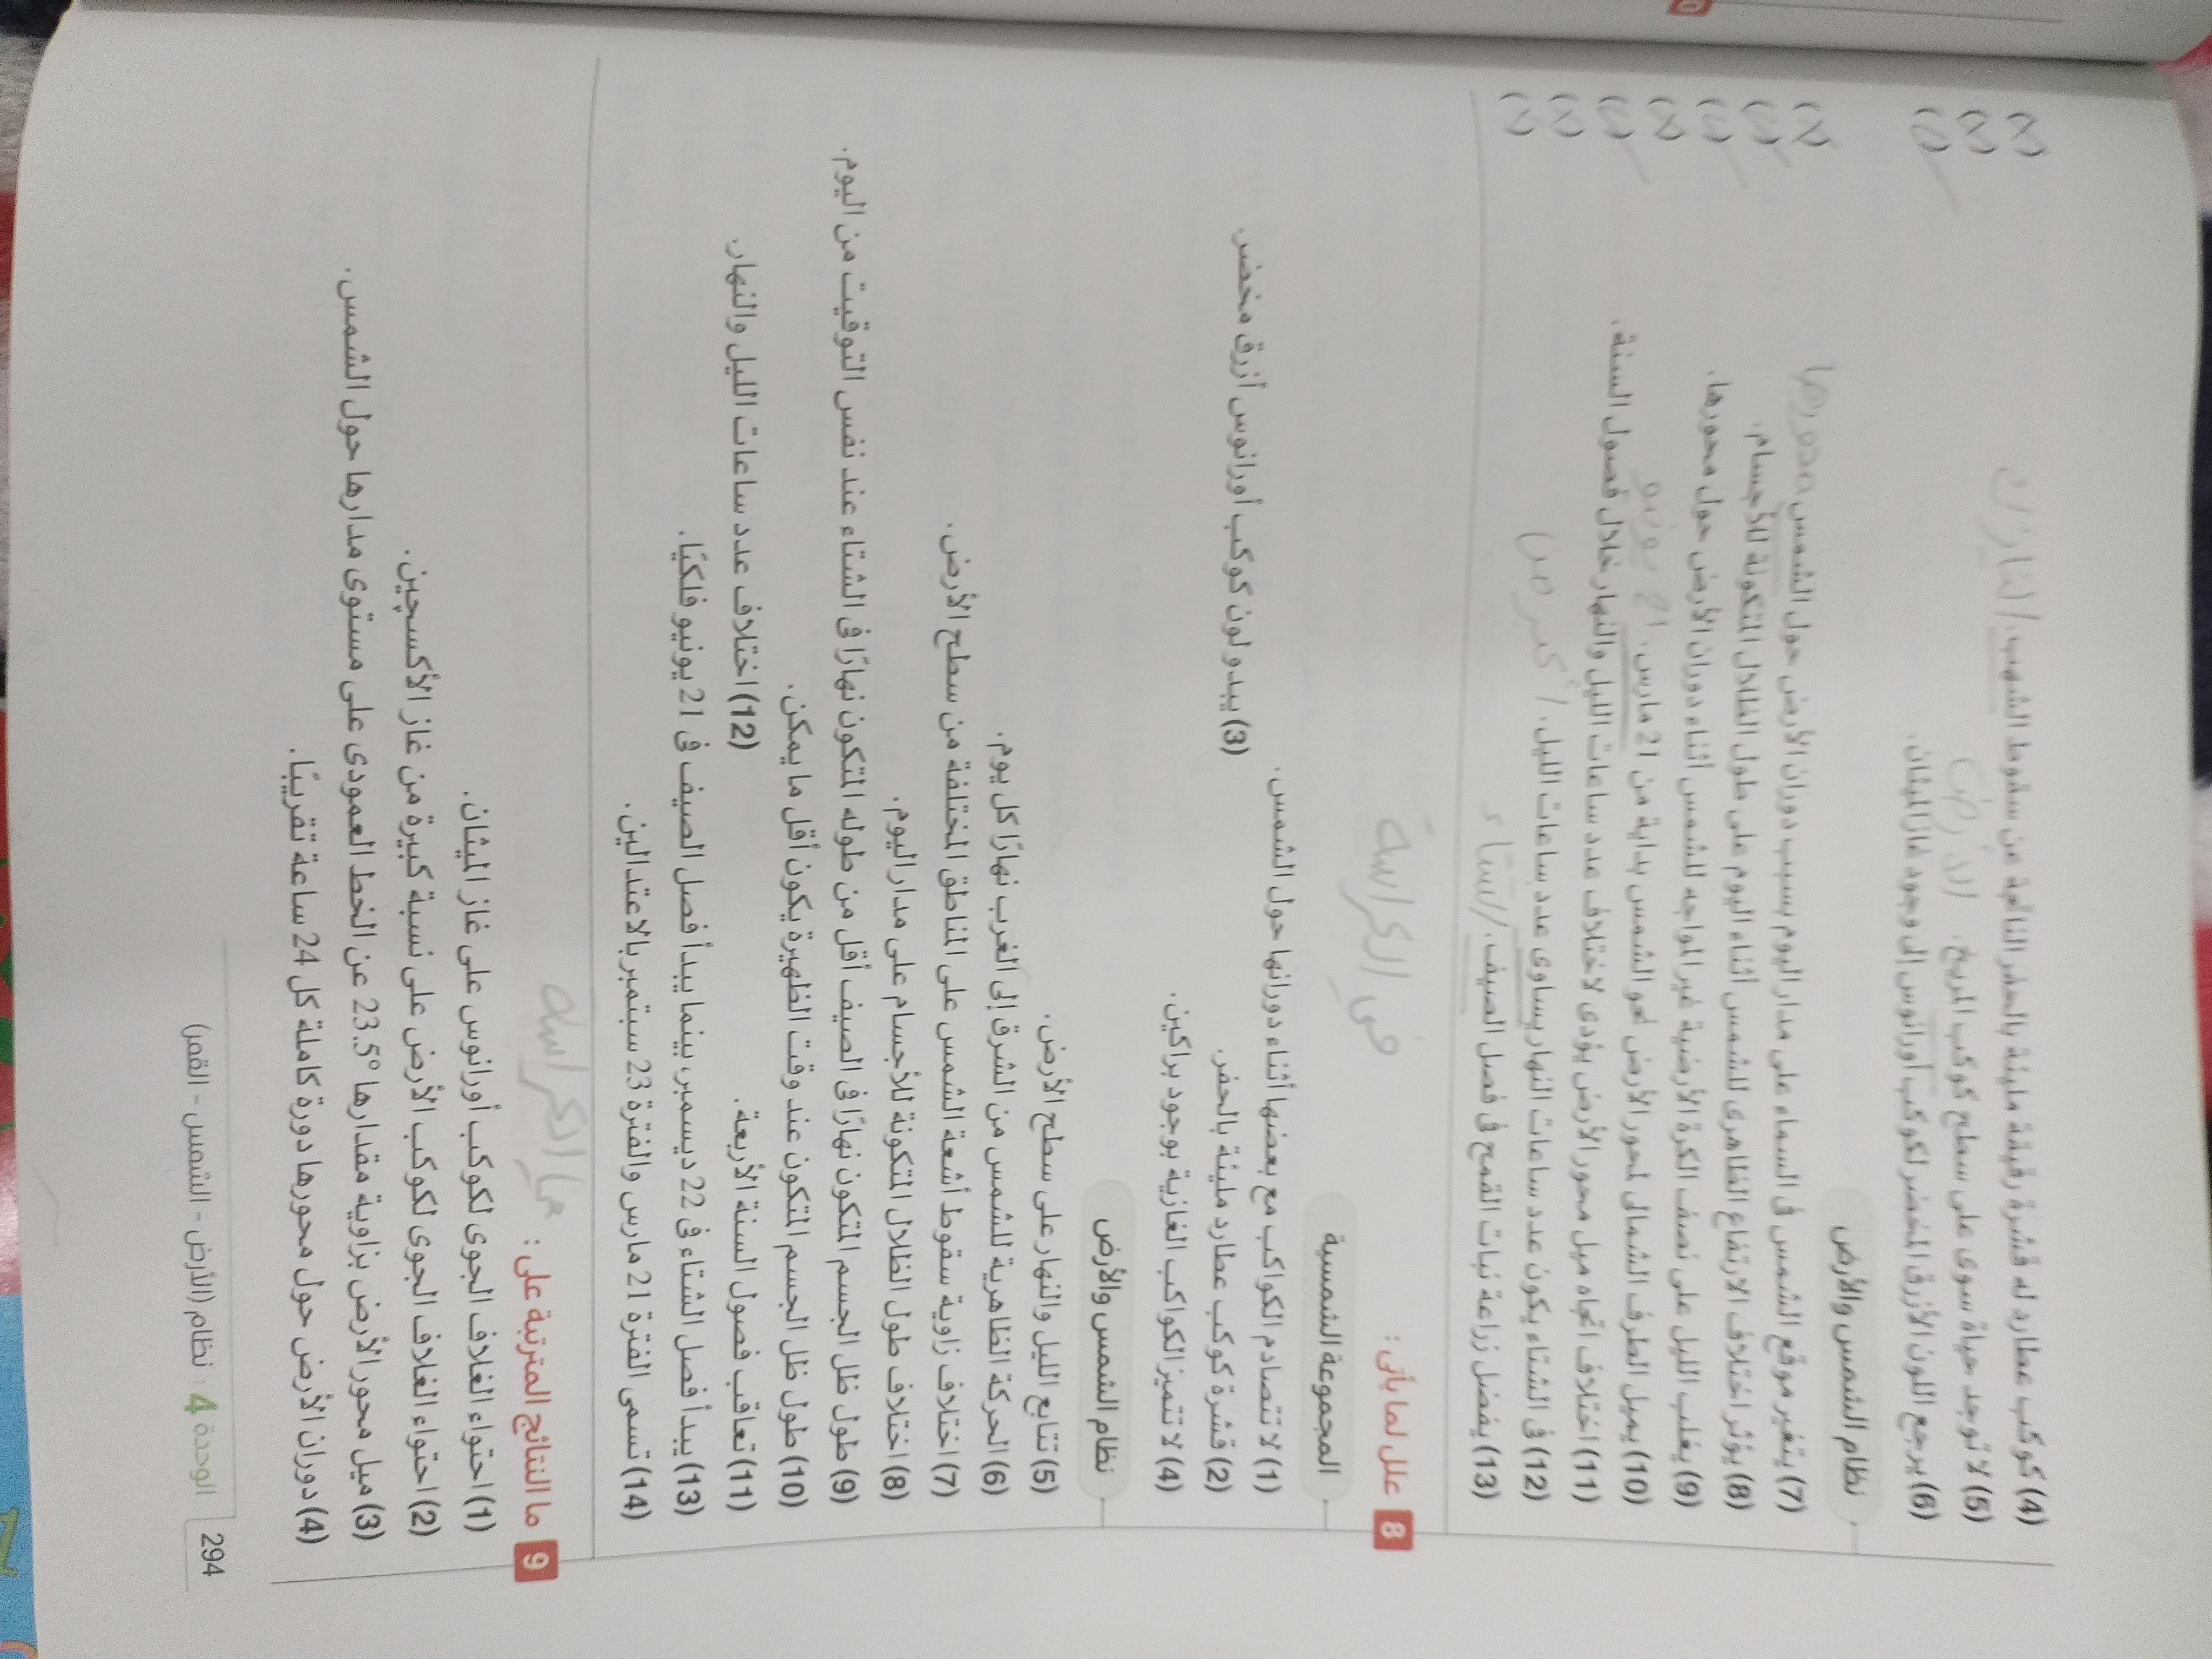 (4) كوكب عطارد له قشرة رقيقة مليئة بالحفر الناتجة عن سقوط الشهب. النيازك (x)
(5) لا توجد حياة سوى على سطح كوكب المريخ. الأرض (x)
(6) يرجع اللون الأزرق المخضر لكوكب أورانوس إلى وجود غاز الميثان. (✓)
نظام الشمس والأرض
(7) يتغير موقع الشمس فى السماء على مدار اليوم بسبب دوران الأرض حول الشمس محورها (x)
(8) يؤثر اختلاف الارتفاع الظاهرى للشمس أثناء اليوم على طول الظلال المتكونة للأجسام. (✓)
(9) يغلب الليل على نصف الكرة الأرضية غير المواجه للشمس أثناء دوران الأرض حول محورها. (✓)
(10) يميل الطرف الشمالى لمحور الأرض نحو الشمس بداية من 21 مارس. 21 يونيو (x)
(11) اختلاف اتجاه ميل محور الأرض يؤدى لاختلاف عدد ساعات الليل والنهار خلال فصول السنة. (✓)
(12) فى الشتاء يكون عدد ساعات النهار يساوى عدد ساعات الليل. (x)
(13) يفضل زراعة نبات القمح فى فصل الصيف. الشتاء (x)
8 علل لما يأتى : فى الكراسة
المجموعة الشمسية
(1) لا تتصادم الكواكب مع بعضها أثناء دورانها حول الشمس.
(2) قشرة كوكب عطارد مليئة بالحفر. (3) يبدو لون كوكب أورانوس أزرق مخضر.
(4) لا تتميز الكواكب الغازية بوجود براكين.
نظام الشمس والأرض
(5) تتابع الليل والنهار على سطح الأرض.
(6) الحركة الظاهرية للشمس من الشرق إلى الغرب نهارًا كل يوم.
(7) اختلاف زاوية سقوط أشعة الشمس على المناطق المختلفة من سطح الأرض.
(8) اختلاف طول الظلال المتكونة للأجسام على مدار اليوم.
(9) طول ظل الجسم المتكون نهارًا فى الصيف أقل من طوله المتكون نهارًا فى الشتاء عند نفس التوقيت من اليوم.
(10) طول ظل الجسم المتكون عند وقت الظهيرة يكون أقل ما يمكن.
(11) تعاقب فصول السنة الأربعة. (12) اختلاف عدد ساعات الليل والنهار.
(13) يبدأ فصل الشتاء فى 22 ديسمبر، بينما يبدأ فصل الصيف فى 21 يونيو فلكيًا.
(14) تسمى الفترة 21 مارس والفترة 23 سبتمبر بالاعتدالين.
9 ما النتائج المترتبة على :
(1) احتواء الغلاف الجوى لكوكب أورانوس على غاز الميثان.
(2) احتواء الغلاف الجوى لكوكب الأرض على نسبة كبيرة من غاز الأكسچين.
(3) ميل محور الأرض بزاوية مقدارها °23.5 عن الخط العمودى على مستوى مدارها حول الشمس.
(4) دوران الأرض حول محورها دورة كاملة كل 24 ساعة تقريبًا.
294 الوحدة 4 : نظام (الأرض - الشمس - القمر)